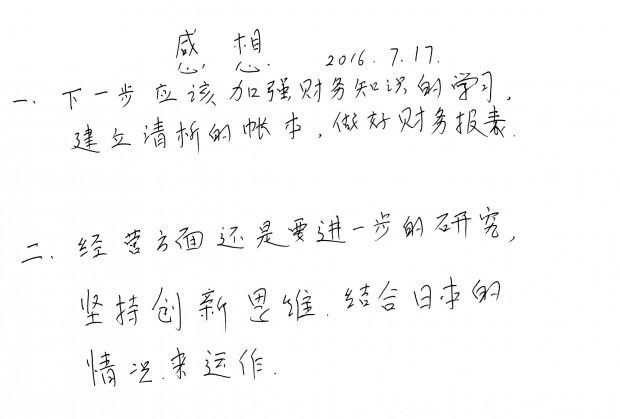 感想. 2016.7.17.
一. 下一步应该加强财务知识的学习,
建立清析的帐本, 做好财务报表.
二. 经营方面还是要进一步的研究,
坚持创新思维. 结合日本的
情况来运作.